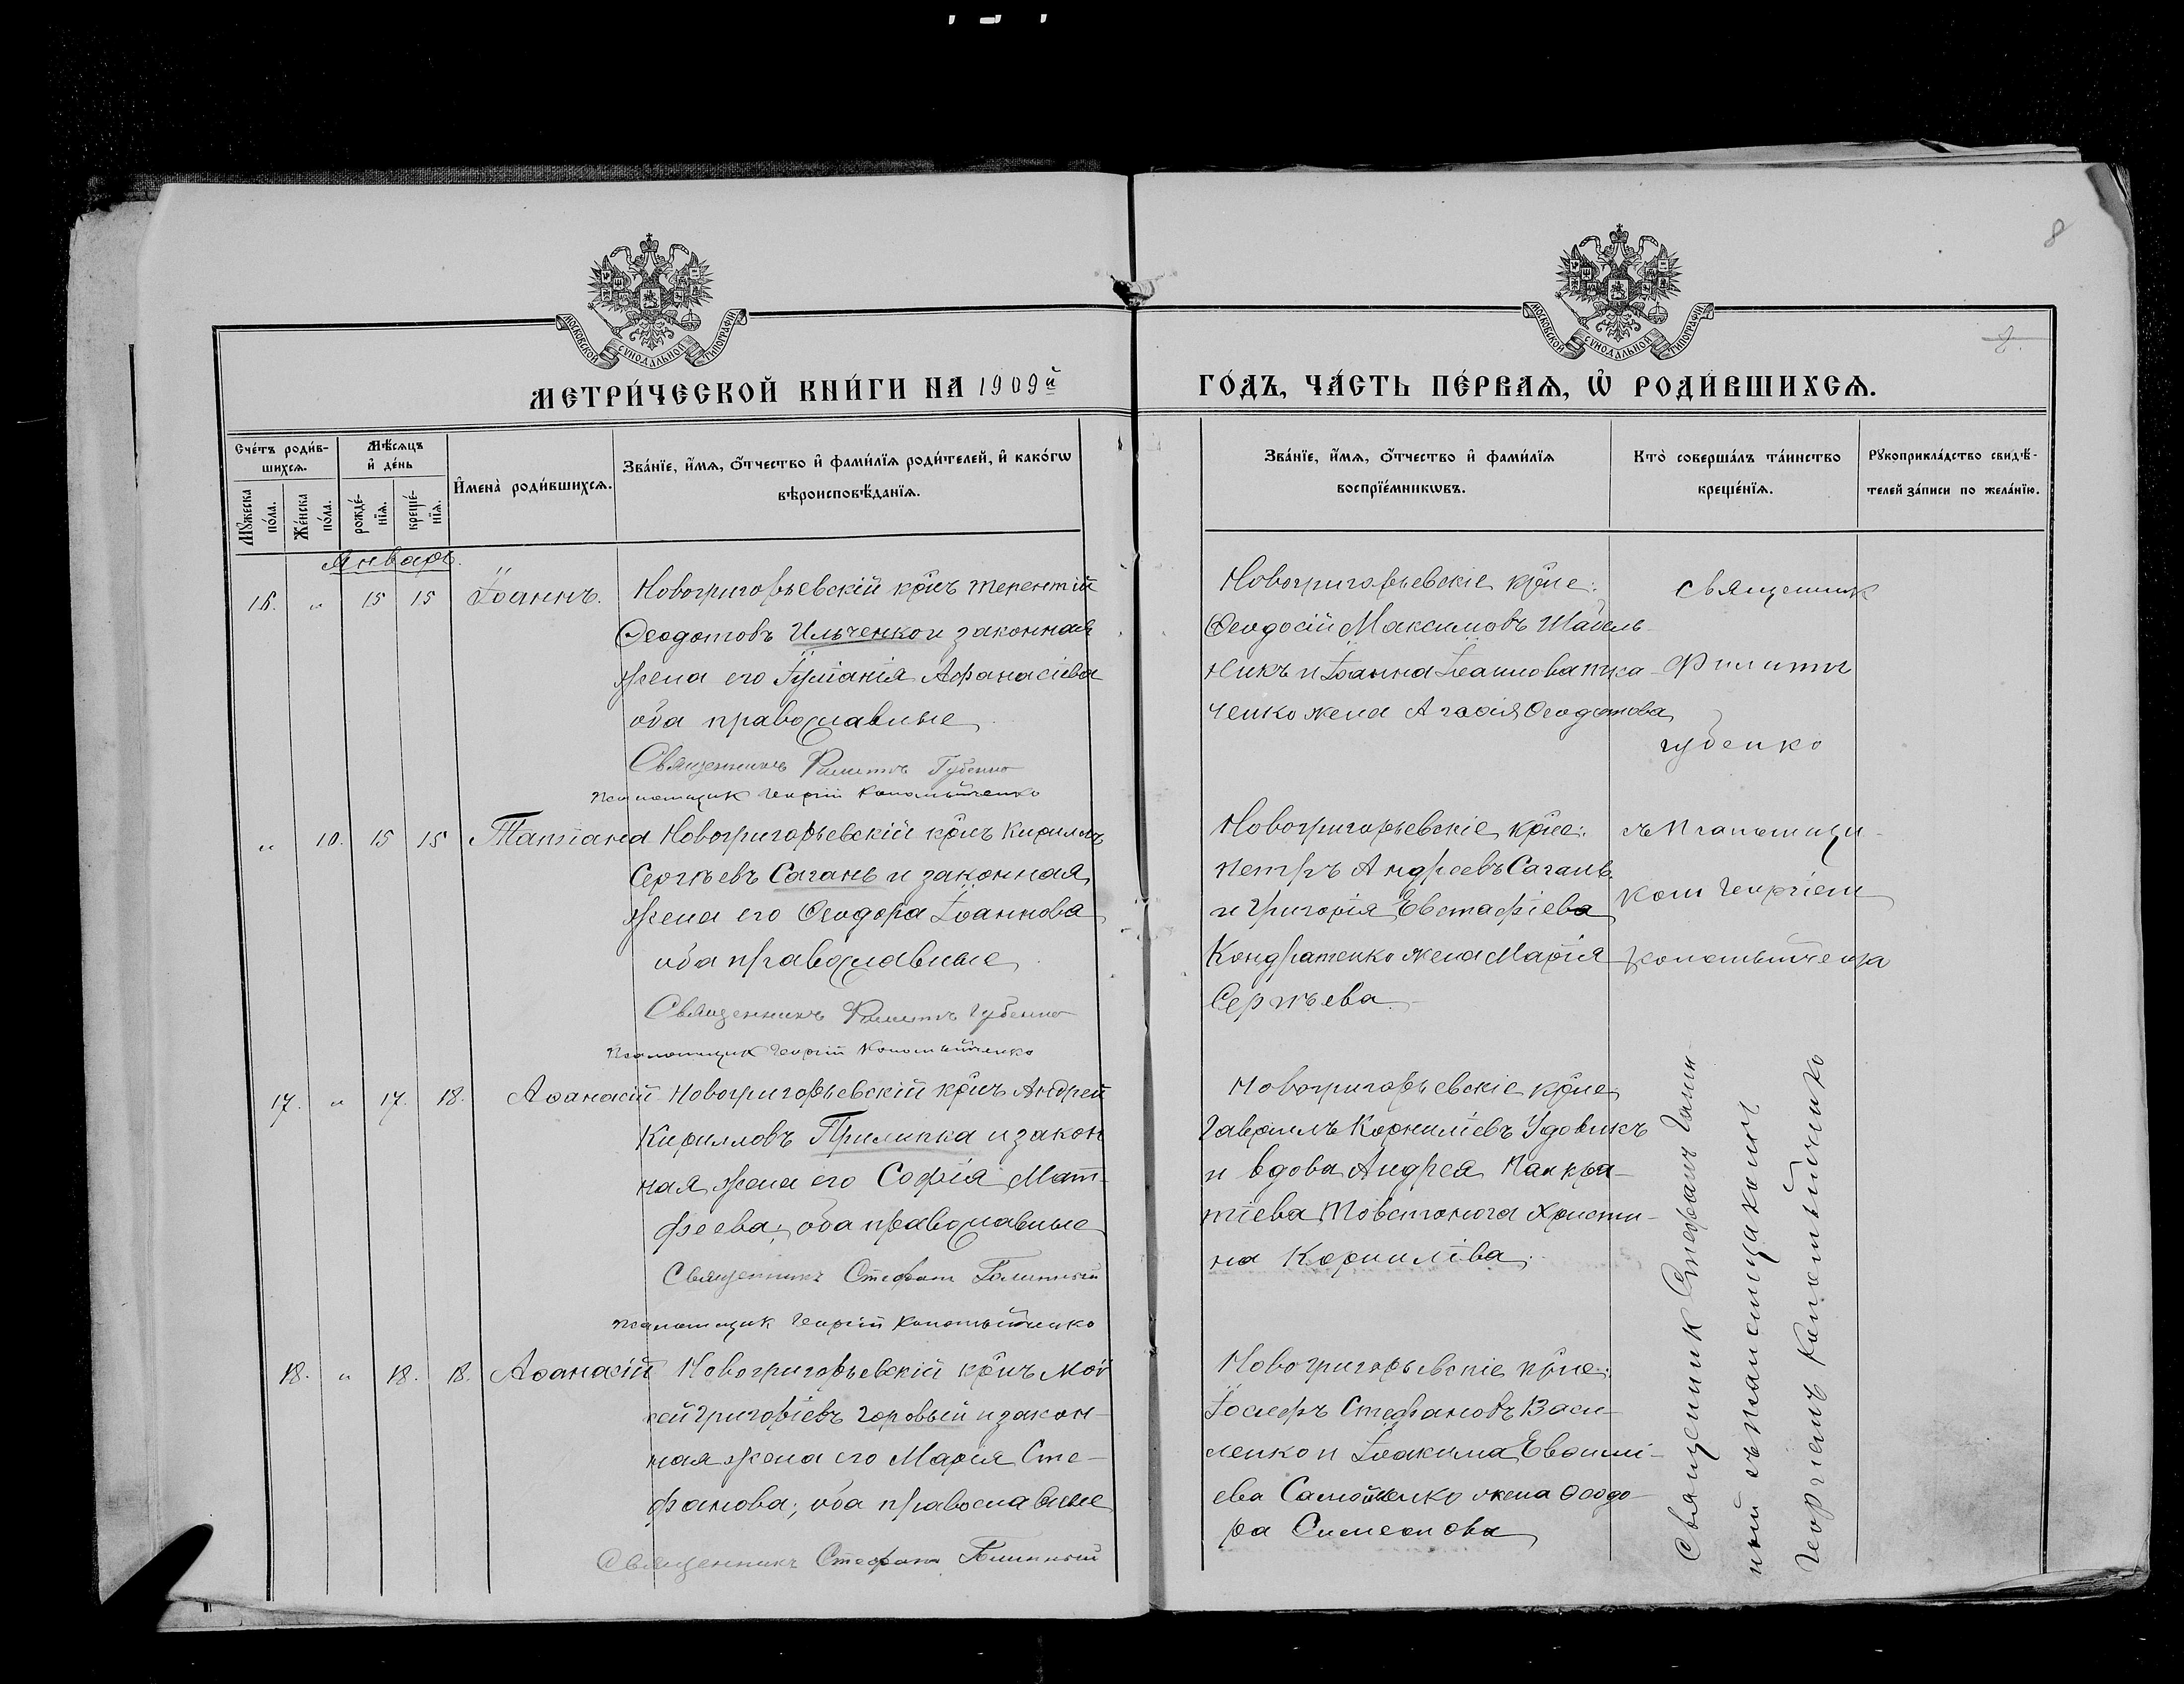 8
8.
МОСКОВСКОЙ СУНОДАЛЬНОЙ ТИПОГРАФІИ
МОСКОВСКОЙ СУНОДАЛЬНОЙ ТИПОГРАФІИ
МЕТРИ́ЧЕСКОЙ КНИ́ГИ НА 1909й
ГО́ДЪ, ЧА́СТЬ ПЕ́РВАѦ, Ѡ҆ РОДИ́ВШИХСѦ.
Сче́тъ роди́в-
шихсѧ.
Мꙋ́жеска по́ла.
Же́нска по́ла.
Мѣ́сѧцъ
и҆ де́нь
рожде́-
нїѧ.
креще́-
нїѧ.
И҆мена̀ роди́вшихсѧ.
Зва́нїе, и҆́мѧ, ѻ҆́тчество и҆ фами́лїѧ роди́телей, и҆ како́гѡ
вѣроисповѣ́данїѧ.
Зва́нїе, и҆́мѧ, ѻ҆́тчество и҆ фами́лїѧ
воспрїе́мникѡвъ.
Кто̀ соверша́лъ та́инство
креще́нїѧ.
Рꙋкоприкла́дство свидѣ́-
телей за́писи по жела́нїю.
Январь.
16. „ 15 15 Іоаннъ. Новогригорьевскій кр̃нъ Терентій
Ѳеодотовъ Ильченко и законная
жена его Іуліанія Афанасіева
оба православные
Священникъ Филиппъ Губенко
Псаломщик Георгій Коломыйченко
Новогригорьевскіе кр̃не:
Ѳеодосій Максимовъ Шабель-
никъ и Іоанна Іоаннова
ченко жена Агаѳія Ѳеодотова
Священник
Филиппъ
Губенко
„ 10. 15 15 Татіана Новогригорьевскій кр̃нъ Кириллъ
Сергѣевъ Сагань и законная
жена его Ѳеодора Іоаннова
оба православные
Священникъ Филиппъ Губенко
Псаломщик Георгій Коломыйченко
Новогригорьевскіе кр̃не:
Петръ Андреевъ Сагань
и Григорія Евстафіева
Кондратенко жена Марія
Сергѣева
съ Псаломщи-
ком Георгіем
Коломыйченко
17. „ 17. 18. Аѳанасій Новогригорьевскій кр̃нъ Андрей
Кирилловъ Прилипка и закон
ная жена его Софія Мат-
феева; оба православные
Священникъ Стефанъ Галинный
Псаломщик Георгій Коломыйченко
Новогригорьевскіе кр̃не
Гавріилъ Корниліевъ Удовикъ
и вдова Андрея Панкра-
тіева Товстонога Христи-
на Корниліева.
18. „ 18. 18. Аѳанасій Новогригорьевскій кр̃нъ Мой
сей Григоріевъ Горовый и закон-
ная жена его Марія Сте-
фанова; оба православные
Священникъ Стефанъ Галинный
Новогригорьевскіе кр̃не:
Іосифъ Стефановъ Васи-
ленко и Іоакима
ева Самойленко жена Ѳеодо-
ра Симеонова
Священник Стефанъ Галин-
ный съ Псаломщикомъ
Георгіемъ Коломыйченко